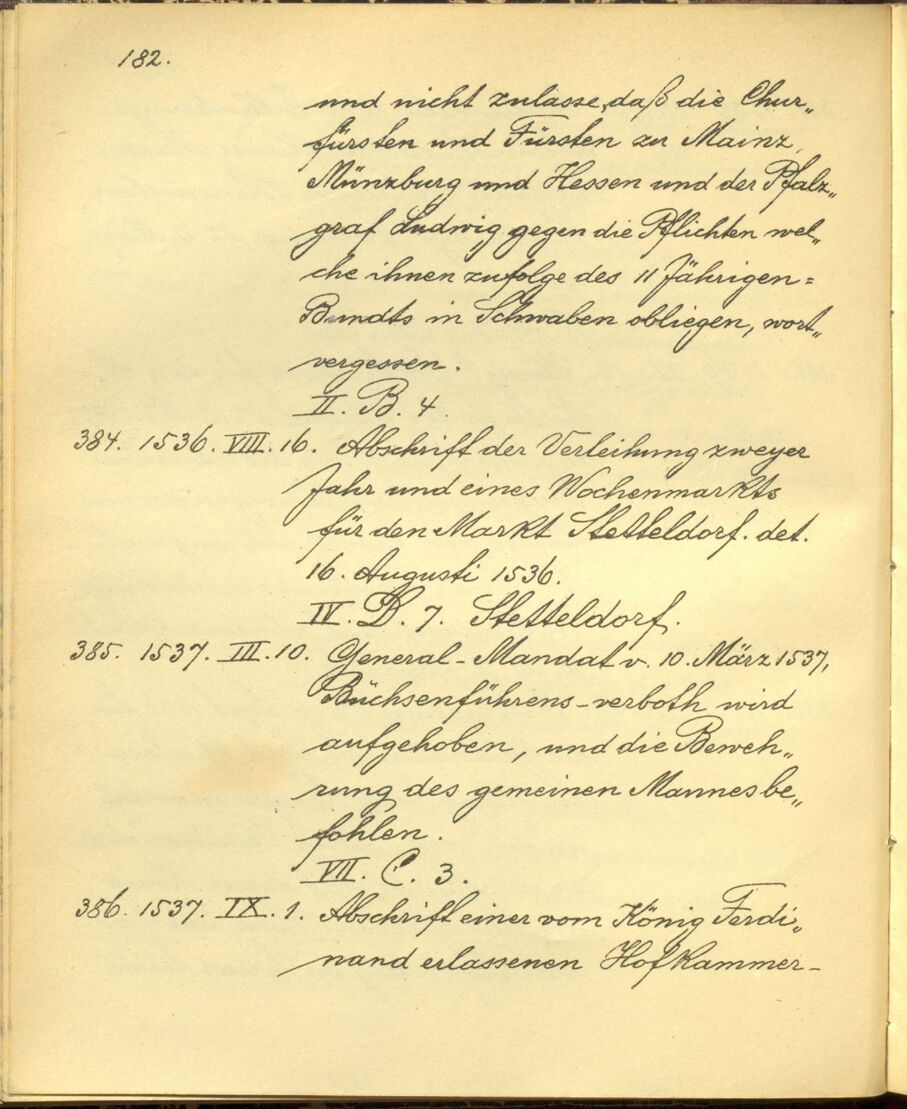 182.
und nicht zulasse, daß die Chur„
fürsten und Fürsten zu Mainz,
Münzburg und Hessen und der Pfalz„
graf Ludwig gegen die Pflichten wel„
che ihnen zufolge des 11 Jährigen=
Bundts in Schwaben obliegen, wort„
vergessen.
II. B. 4.
384. 1536. VIII. 16. Abschrift der Verleihung zweyer
Jahr und eines Wochenmarkts
für den Markt Stetteldorf. det.
16. Augusti 1536.
IV. D. 7. Stetteldorf.
385. 1537. III. 10. General-Mandat v. 10. März 1537,
Büchsenführens-verboth wird
aufgehoben, und die Beweh„
rung des gemeinen Mannes be„
fohlen.
VII. C. 3.
386. 1537. IX. 1. Abschrift einer vom König Ferdi„
nand erlassenen Hofkammer-